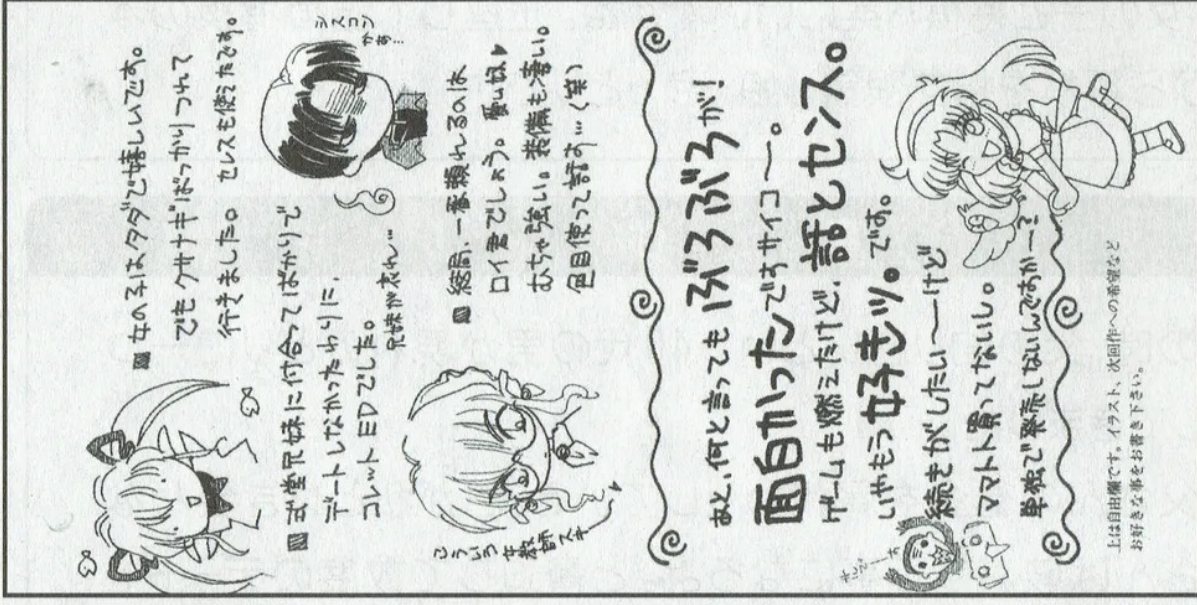 ■ 女の子は で嬉しいです。
でもクサナギばっかりつれて
行きました。セレスも使えたです。
■ 式堂兄妹に付合ってばかりで
デートしなかったわりに
コレットEDでした。
兄妹が
シスコン
こういう女教師スキ
■ 結局、一番頼れるのは
ロイ君でしょう。
むちゃ強い。装備も善い。
色目使って話す…(笑)
あと、何と言ってもぶろぶろが!
面白かったですサイコー―。
ゲームも燃えたけど、話とセンス。
いやもう好きッ。です。
続きがしたい〜〜けど
ママトト買ってないし。
単独で発売しないんですかー?
上は自由欄です。イラスト、次回作への希望など
お好きな事をお書き下さい。